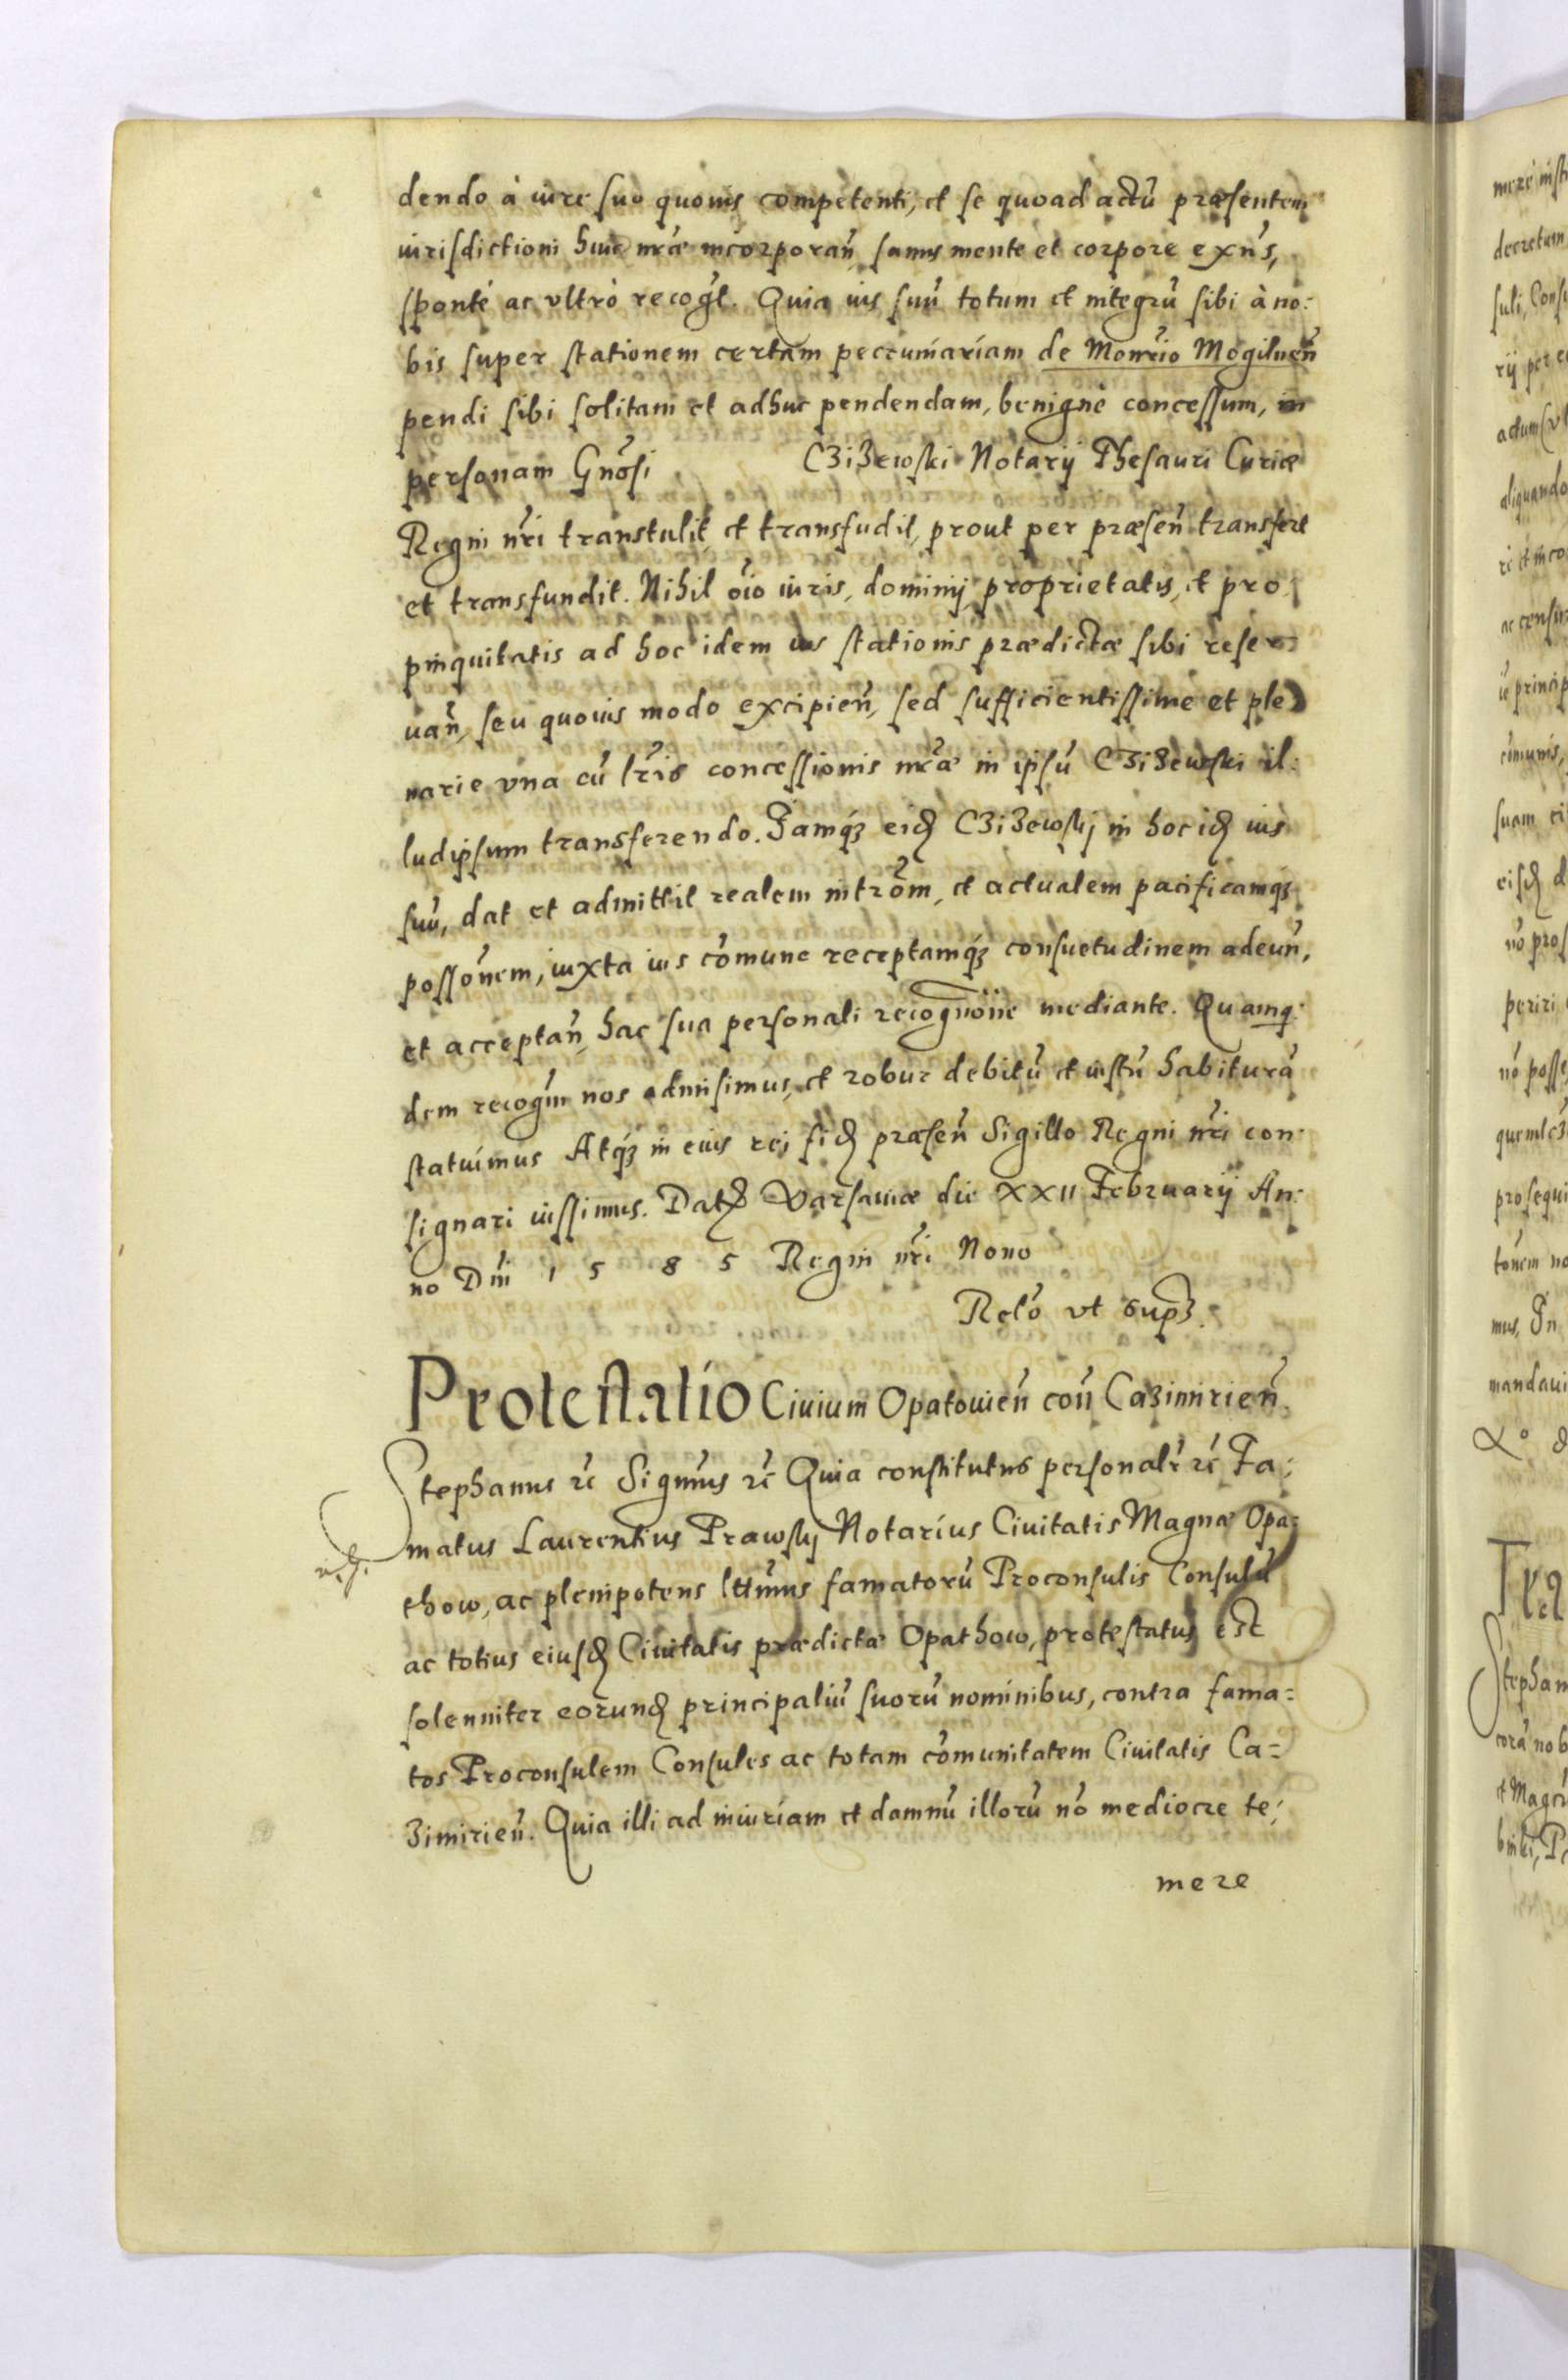 dendo à iure suo quovis competenti, et se quoad actū præsentem
iurisdictioni huic nr̃æ incorporañ, sanus mente et corpore exñs,
sponte ac vltrò recog̃t. Quia ius suū totum et integrū sibi à no:
bis super stationem certam peccuniariam de Monr̃io Mogilneñ
pendi sibi solitam et adhuc pendendam, benignè concessum, in
personam Gnõsi CziZewski Notarij Thesauri Curiæ
Regni nr̃i transtulit, et transfudit, prout per præseñ transfert
et transfundit. Nihil oĩo iuris, dominij proprietatis, et pro
pinquitatis ad hoc idem ius stationis prædictæ sibi reser=
uañ, seu quouis modo excipieñ, sed sufficientissime et ple
narie vna cū lr̃is concessionis nr̃æ in ipsū CziZewski il:
ludipsum transferendo. Iamq́ȝ eidꝫ CziZewskj in hoc idꝫ ius
suū, dat et admittit realem introm̃, et actualem pacificamq́ȝ
possõnem, iuxta ius cõmune receptamq́ȝ consuetudinem adeuñ,
et acceptañ, hac sua personali recognõne mediante. Quamq:
dem recogm̃ nos admisimus, et robur debitū et iustū habiturā
statuimus Atq́ȝ in eius rej fidꝫ præseñ Sigillo Regni nr̃i con:
signari iussimus. Datꝫ Varsauiæ die XXII Februarij An:
no Dñi 1 5 8 5 Regni nr̃i Nono
Relõ vt supꝫ.
Protestatio Ciuium Opatouieñ coñ Cazimirieñ
Stephanus r̃c Signm̃us r̃c Quia constitutus personalr̃ r̃c Fa:
matus Laurentius Prawskj Notarius Ciuitatis Magnæ Opa=
thow, ac plenipotens lttm̃us famatorū Proconsulis Consulū
ac totius eiusdꝫ Ciuitatis prædictæ Opathow, protestatus est
solenniter eorundꝫ principaliū suorū nominibus, contra fama=
tos Proconsulem Consules ac totam cõmunitatem Ciuitatis Ca=
zimirieñ. Quia illi ad iniuriam et damnū illorū nõ mediocre te:
mere